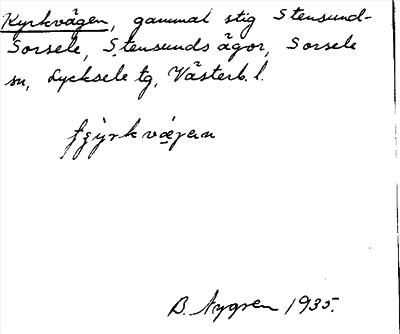 Kyrkvägen, gammal stig Stensund-
Sorsele, Stensunds ägor, Sorsele
sn, Lycksele tg, Västerb. l.
B. Nygren 1935.